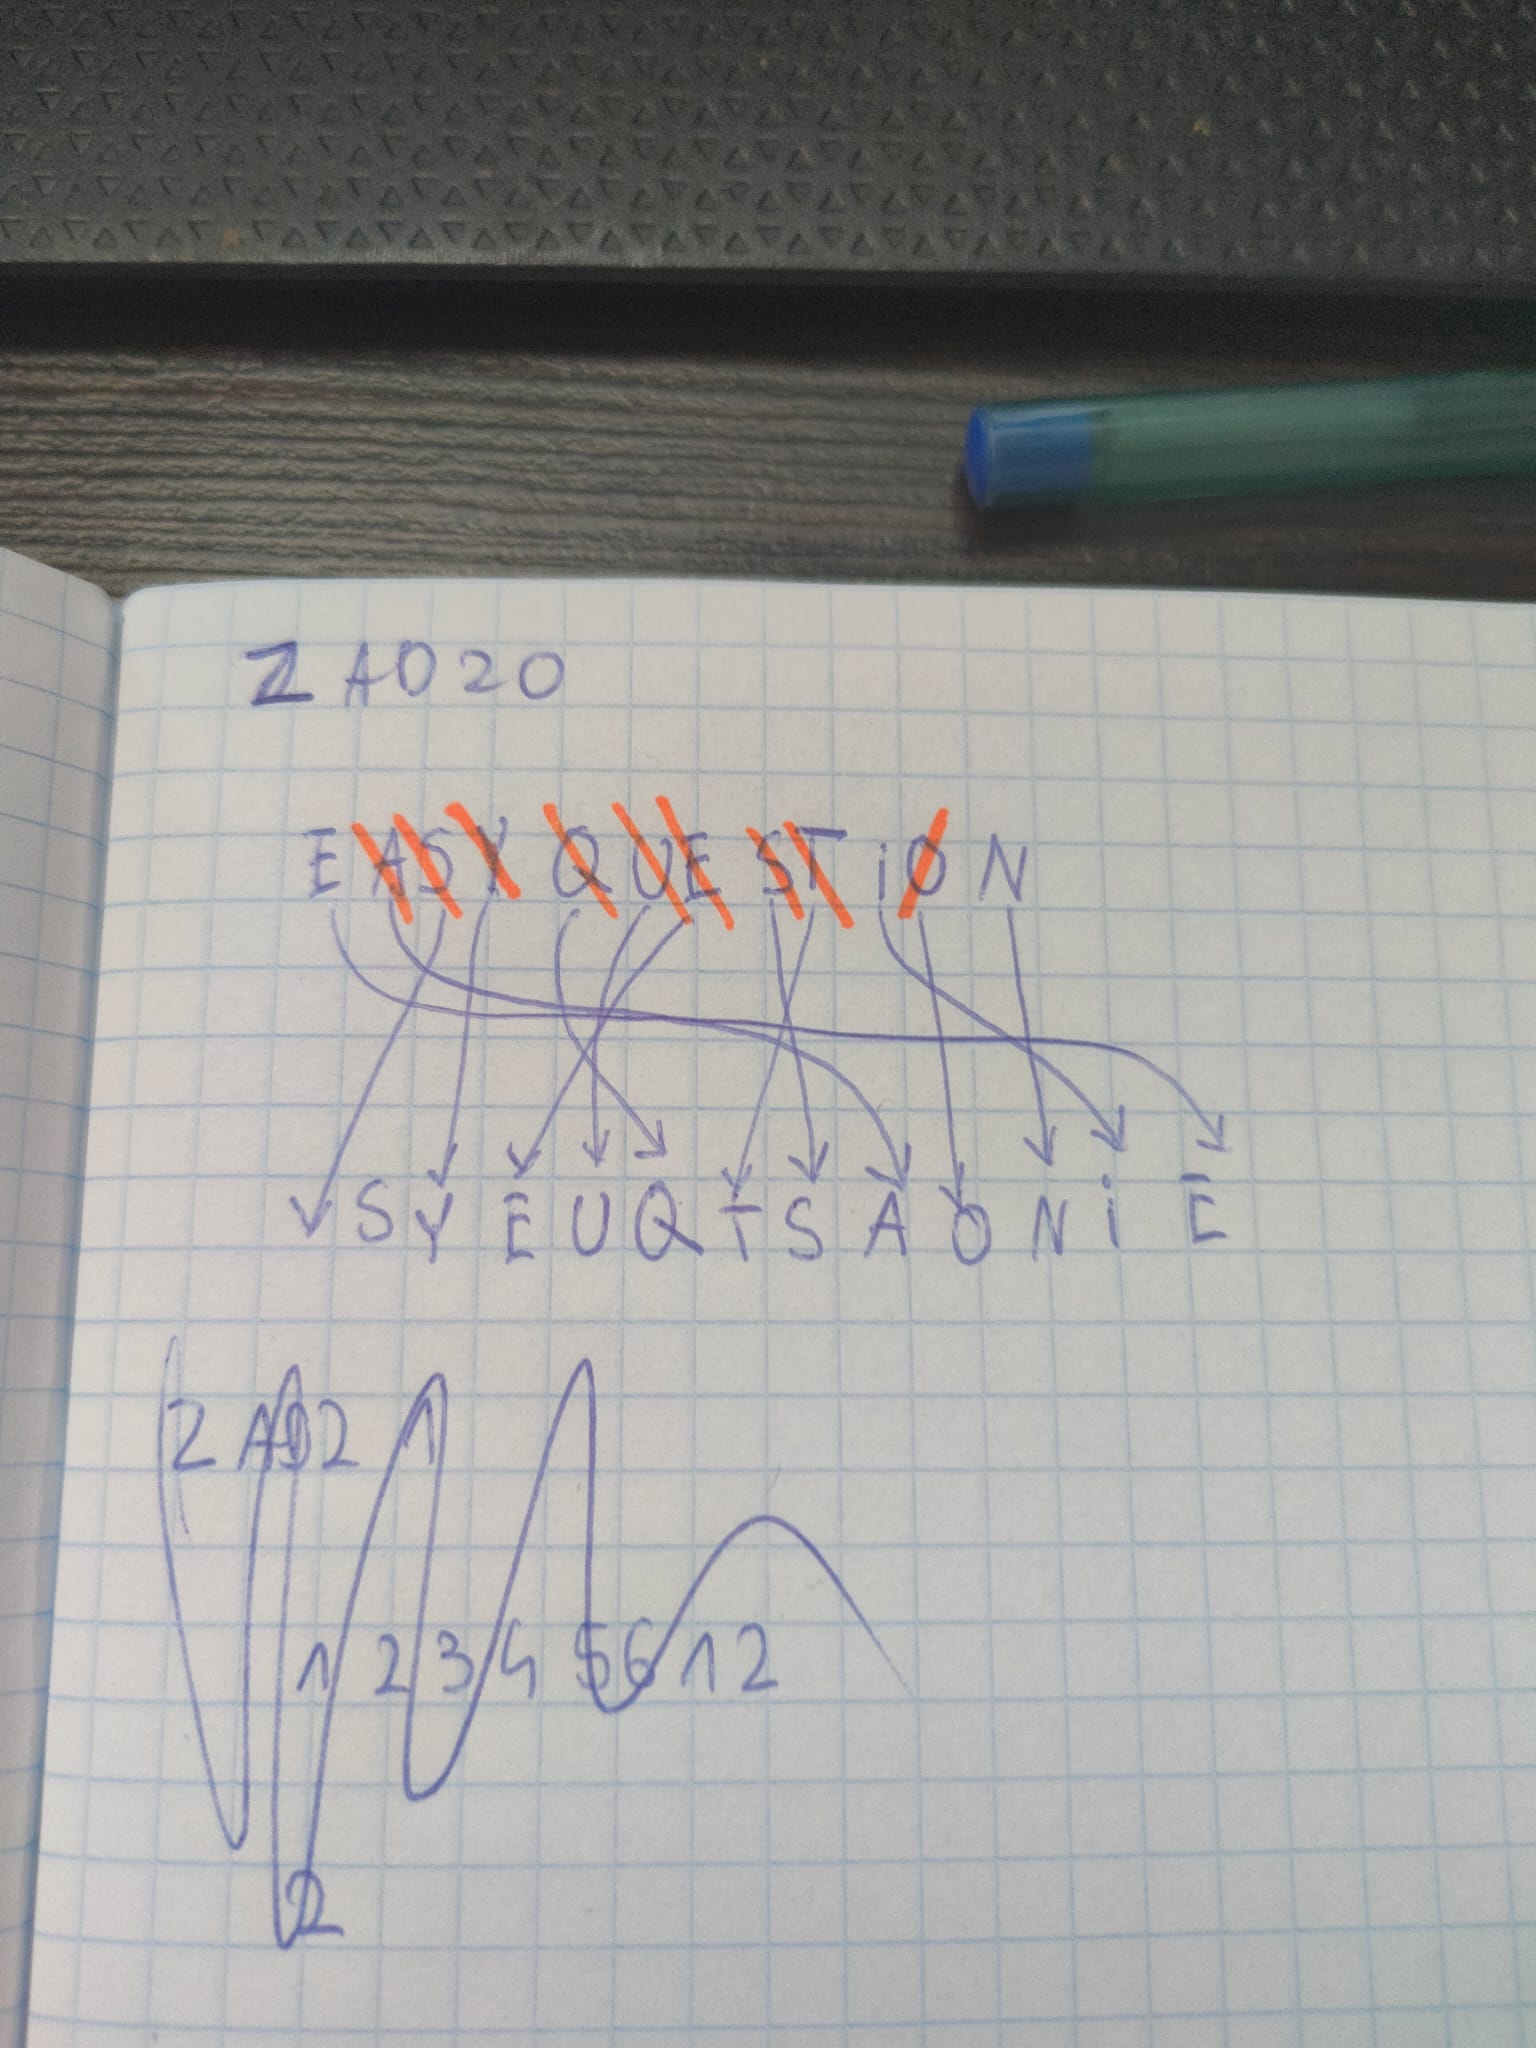 ZAD20
EASY QUESTiON
SYEUQTSAONiE
ZAD2 1
1 2 3 4 5 6 1 2
2